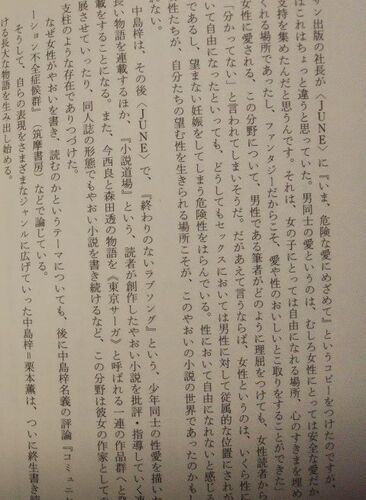 サン出版の社長が〈JUNE〉に『いま、危険な愛にめざめて』というコピーをつけたのですが、
はこれはちょっと違うと思っていた。男同士の愛というのは、むしろ女性にとっては安全な愛だ
支持を集めたんだと思うんです。それは、女の子にとっては自由になれる場所、心のすきまを埋め
くれる場所であったし、ファンタジーだからこそ、愛や性のおいしいとこ取りをすることができた」
女性に愛される、この分野について、男性である筆者がどのように理屈をつけても、女性読者か
「分かってない」と言われてしまいそうだ。だがあえて言うならば、女性というのは、いくら性に
いて自由になったといっても、どうしてもセックスにおいては男性に対して従属的な位置にされ
であるし、望まない妊娠をしてしまう危険性をはらんでいる。性において自由になれないと感じ
性たちが、自分たちの望む性を生きられる場所こそが、このやおいの小説の世界であったのかも
ない。
中島梓は、その後〈JUNE〉で、『終わりのないラブソング』という、少年同士の性愛を描い
長い物語を連載するほか、『小説道場』という、読者が創作したやおい小説を批評・指導していく連
載をすることになる。また、今西良と森田透の物語を《東京サーガ》と呼ばれる一連の作品群へと
展させていったり、同人誌の形態でもやおい小説を書き続けるなど、この分野は彼女の作家として
支柱のような存在でありつづけた。
なぜ女性がやおいを書き、読むのかというテーマについても、後に中島梓名義の評論『コミュニ
ーション不全症候群』（筑摩書房）などで論じている。
そうして、自らの表現をさまざまなジャンルに広げていった中島梓＝栗本薫は、ついに終生書き
ける長大な物語を生み出し始める。